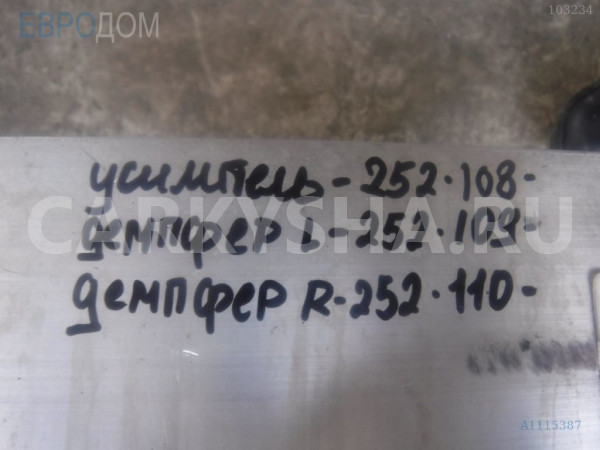 ЕВРОДОМ
103234
усилитель - 252.108 -
демпфер L - 252.109 -
демпфер R - 252.110 -
CARKYSHA.RU
A1115387